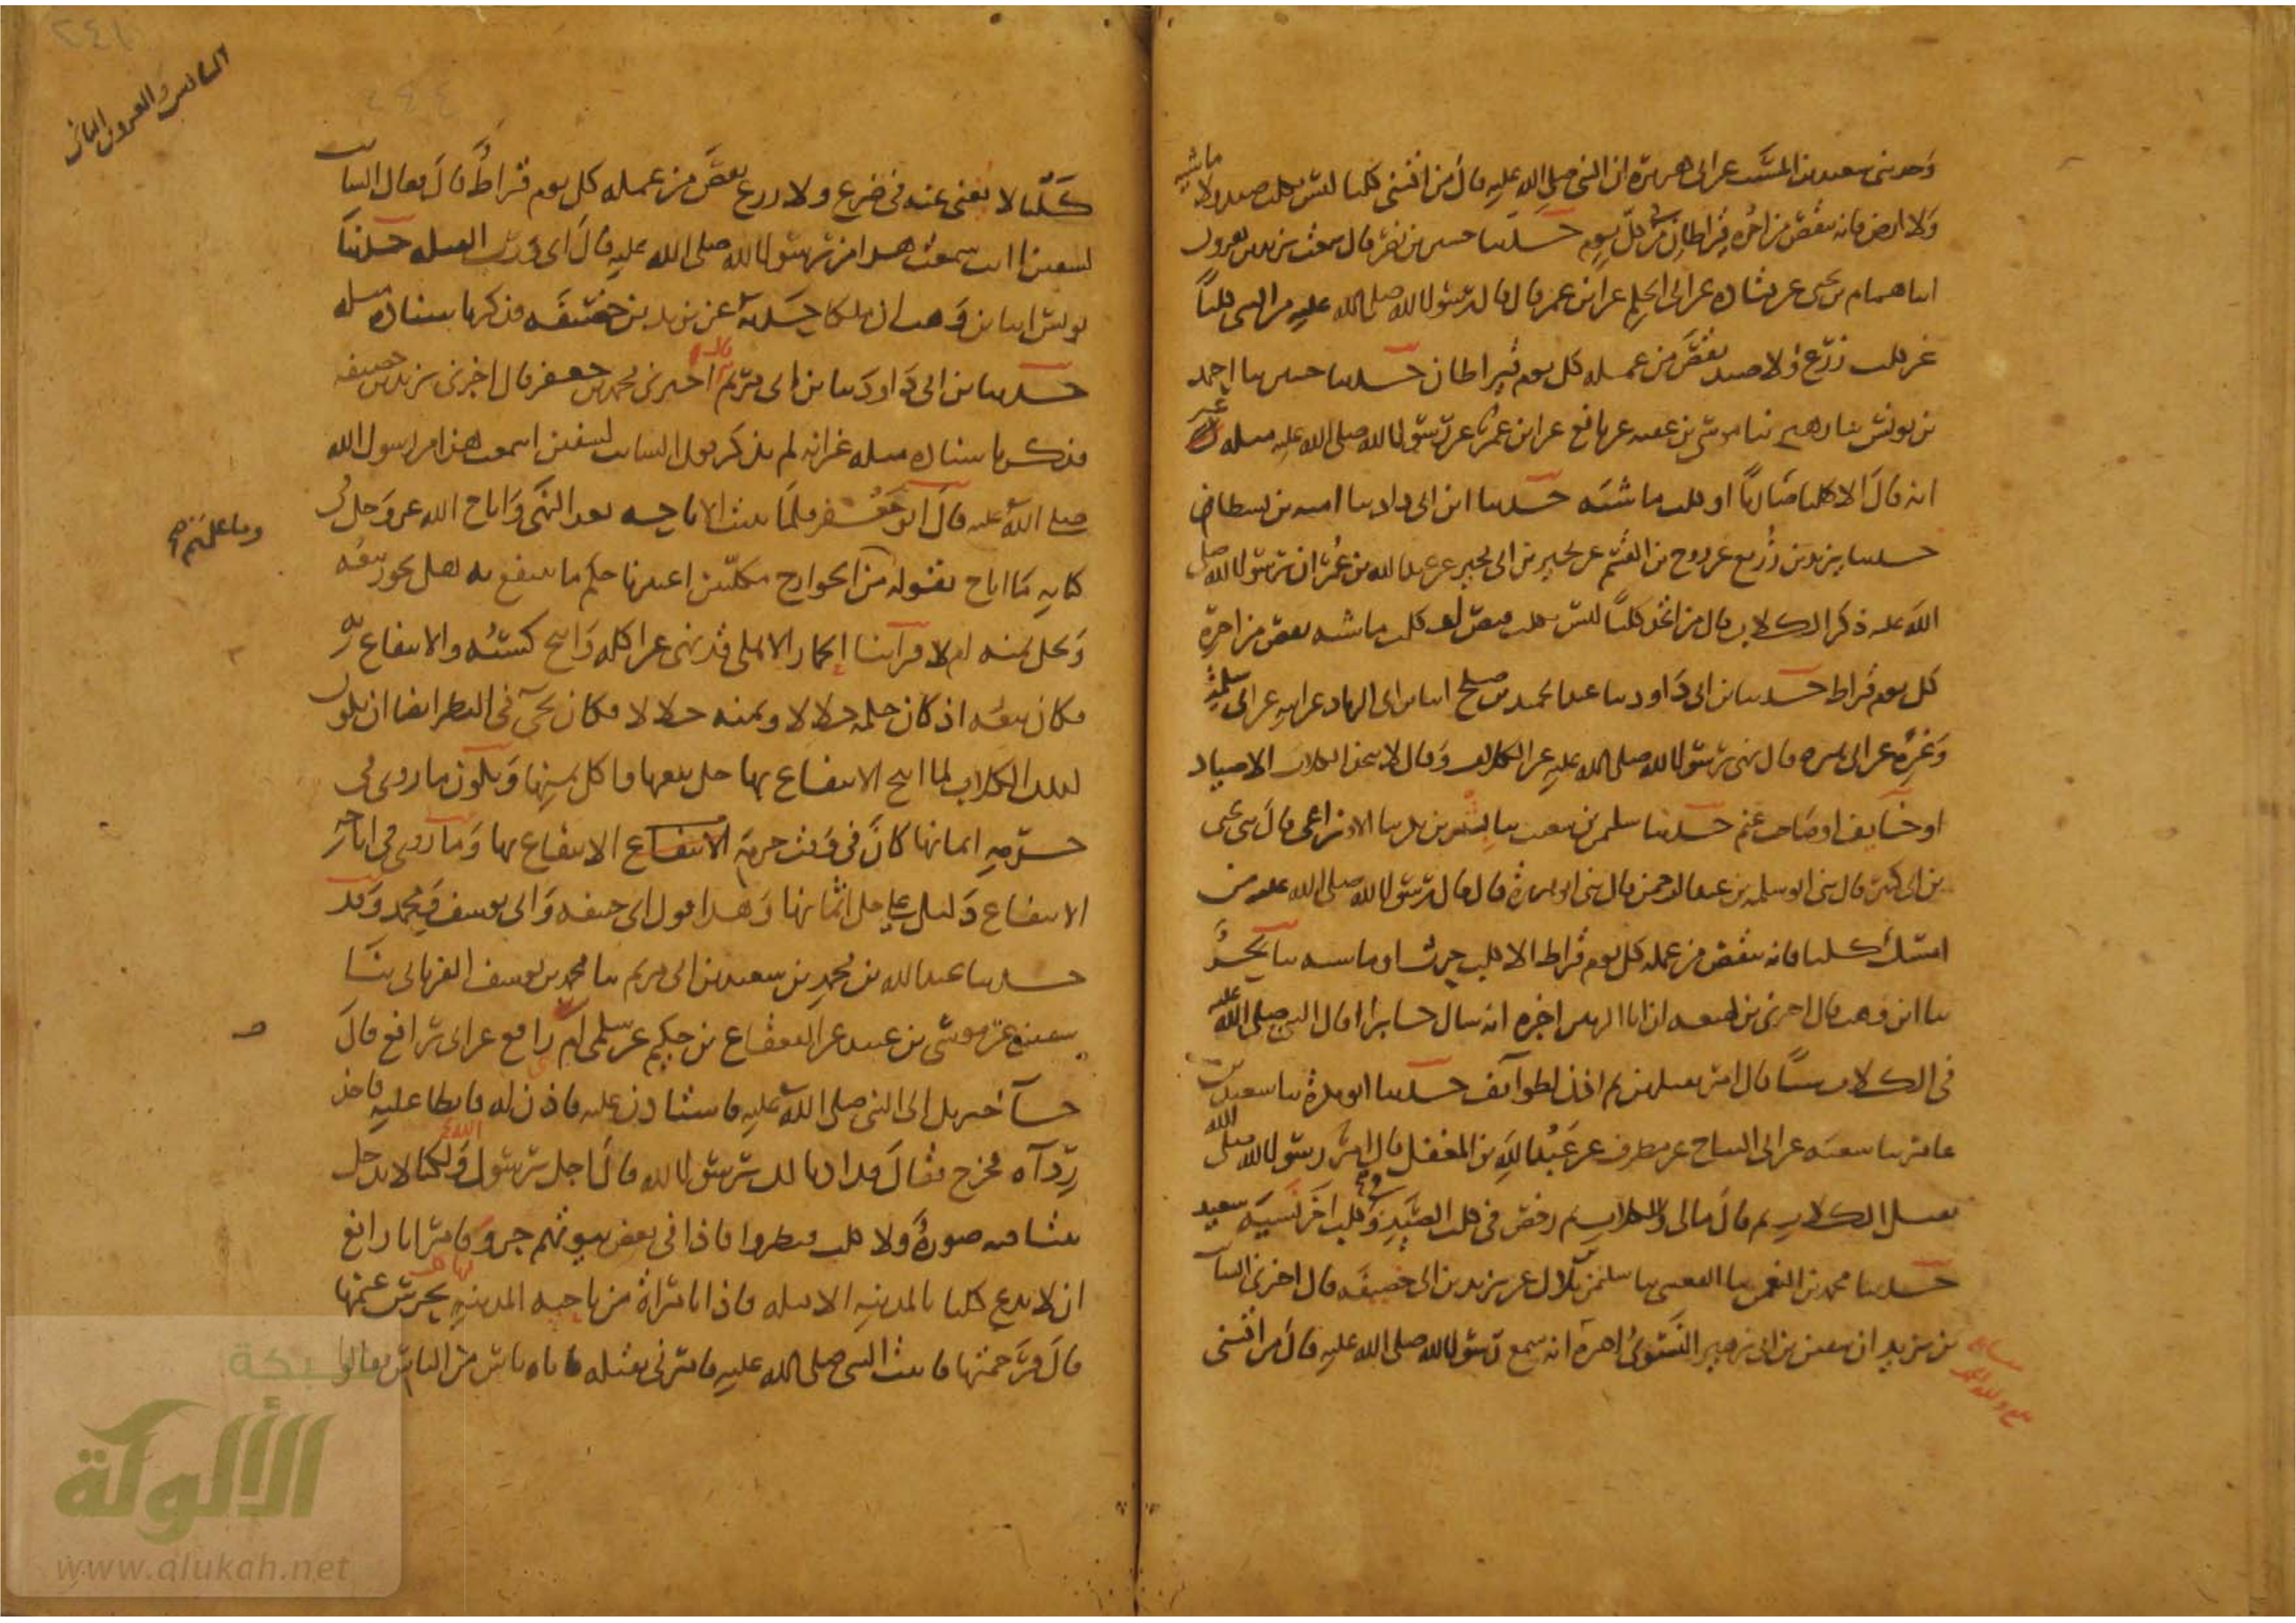 وحدثني سعيد بن المسيب عن ابي هريرة ان النبي صلى الله عليه قال من اقتنى كلبا ليس بكلب صيد ولا ماشيه
ولا ارض فانه ينقص من اجره قيراطان كل يوم حدثنا حسين بن نصر قال سمعت يزيد بن هرون
انا همام بن يحيى عن قتاده عن ابي الحكم عن ابن عمر قال قال رسول الله صلى الله عليه من اقتنى كلبا
غير كلب زرع ولا صيد نقص من عمله كل يوم قيراطان حدثنا حسين نا احمد
بن يونس نا زهير نا موسى بن عقبه عن نافع عن ابن عمر عن رسول الله صلى الله عليه مثله غير
انه قال الا كلبا ضاريا او كلب ماشيه حدثنا ابن ابي داود نا اميه بن بسطام
حدثنا يزيد بن زريع عن روح بن القسم عن بجير بن ابي بجير عن عبد الله بن عمر ان رسول الله صلى
الله عليه ذكر الكلاب قال من اتخذ كلبا ليس بكلب قنص او كلب ماشيه نقص من اجره
كل يوم قيراط حدثنا بن ابي داود نا عبد الحميد بن صلح انا بن ابي الزناد عن ابيه عن ابي سلمه
وغيره عن ابي هريره قال نهى رسول الله صلى الله عليه عن الكلاب وقال لا يتخذ الكلاب الا صياد
او خايف او صاحب غنم حدثنا سليمن بن شعيب نا بشر بن بكر نا الاوزاعي قال ني يحيى
بن ابي كثير قال ني ابو سلمه بن عبد الرحمن قال ني ابو هريرة قال قال رسول الله صلى الله عليه من
امسك كلبا فانه ينقص من عمله كل يوم قيراط الا كلب حرث او ماشيه نا بحر
نا ابن وهب قال اخبرني بن لهيعه ان ابا الزبير اخبره انه سال جابرا اقال النبي صلى الله عليه
في الكلاب شيا قال امر بقتلهن ثم اذن لطوايف حدثنا ابو بكرة نا سعيد بن
عامر نا شعبه عن ابي التياح عن مطرف عن عبد الله بن المغفل قال امر رسول الله صلى الله
بقتل الكلاب ثم قال مالي وللكلاب ثم رخص في كلب الصيد وكلب اخر نسيه سعيد
حدثنا محمد بن النعمن نا القعنبي نا سليمن بن بلال عن يزيد بن ابي خصيفه قال اخبرني السايب
بن يزيد ان سفين بن ابي زهير الشنوي اخبره انه سمع رسول الله صلى الله عليه قال من اقتنى
السادس والعشرون الثاني
كلبا لا يغني عنه في ضرع ولا زرع نقص من عمله كل يوم قيراط قال فقال السايب
لسفين انت سمعت هذا من رسول الله صلى الله عليه قال اي ورب القبله حدثنا
يونس انا بن وهب ان ملكا حدثه عن يزيد بن خصيفه فذكر باسناده مثله
حدثنا بن ابي داود نا بن ابي مريم قال نا اخبرني محمد بن جعفر قال اخبرني يزيد بن خصيفه
فذكر باسناده مثله غير انه لم يذكر قول السايب لسفين اسمعت هذا من رسول الله
صلى الله عليه قال ابو جعفر فلما ثبتت الاباحه بعد النهي واباح الله عز وجل في
كتابه ما اباح بقوله من الجوارح مكلبين اعتبرنا حكم ما ينتفع به هل يجوز بيعه
وما علمتم صح
ويحل ثمنه ام لا فراينا الحمار الاهلي قد نهي عن اكله وابيح كسبه والانتفاع به
فكان بيعه اذ كان حكمه حلالا وثمنه حلالا فكان يجي في النظر ايضا ان يكون
كذلك الكلاب لما ابيح الانتفاع بها حل بيعها واكل ثمنها ويكون ما روي في
حرمه اثمانها كان في وقت حرمة الانتفاع الانتفاع بها وما روي في اباحه
الانتفاع دليل على حل اثمانها وهذا قول ابي حنيفه وابي يوسف ومحمد وقد
حدثنا عبد الله بن محمد بن سعيد بن ابي مريم نا محمد بن يوسف الفريابي نا
سفين عن موسى بن عبيد عن القعقاع بن حكيم عن سلمى ام رافع عن ابي رافع قال
جا جبريل الى النبي صلى الله عليه فاستاذن عليه فاذن له فابطا عليه فاخذ
رداه فخرج فقال قد اذنا لك رسول الله قال اجل رسول الله ولكنا لا ندخل
بيتا فيه صورة ولا كلب فنظروا فاذا في بعض بيوتهم جرو فامر ابا رافع
ان لا يدع كلبا بالمدينه الا قتله فاذا بامراة من ناحيه المدينه لها كلب يحرس غنمها
قال فرحمتها فاتيت النبي صلى الله عليه فامرني بقتله فاتاه ناس من الناس فقالوا
شبكة
الألوكة
www.alukah.net